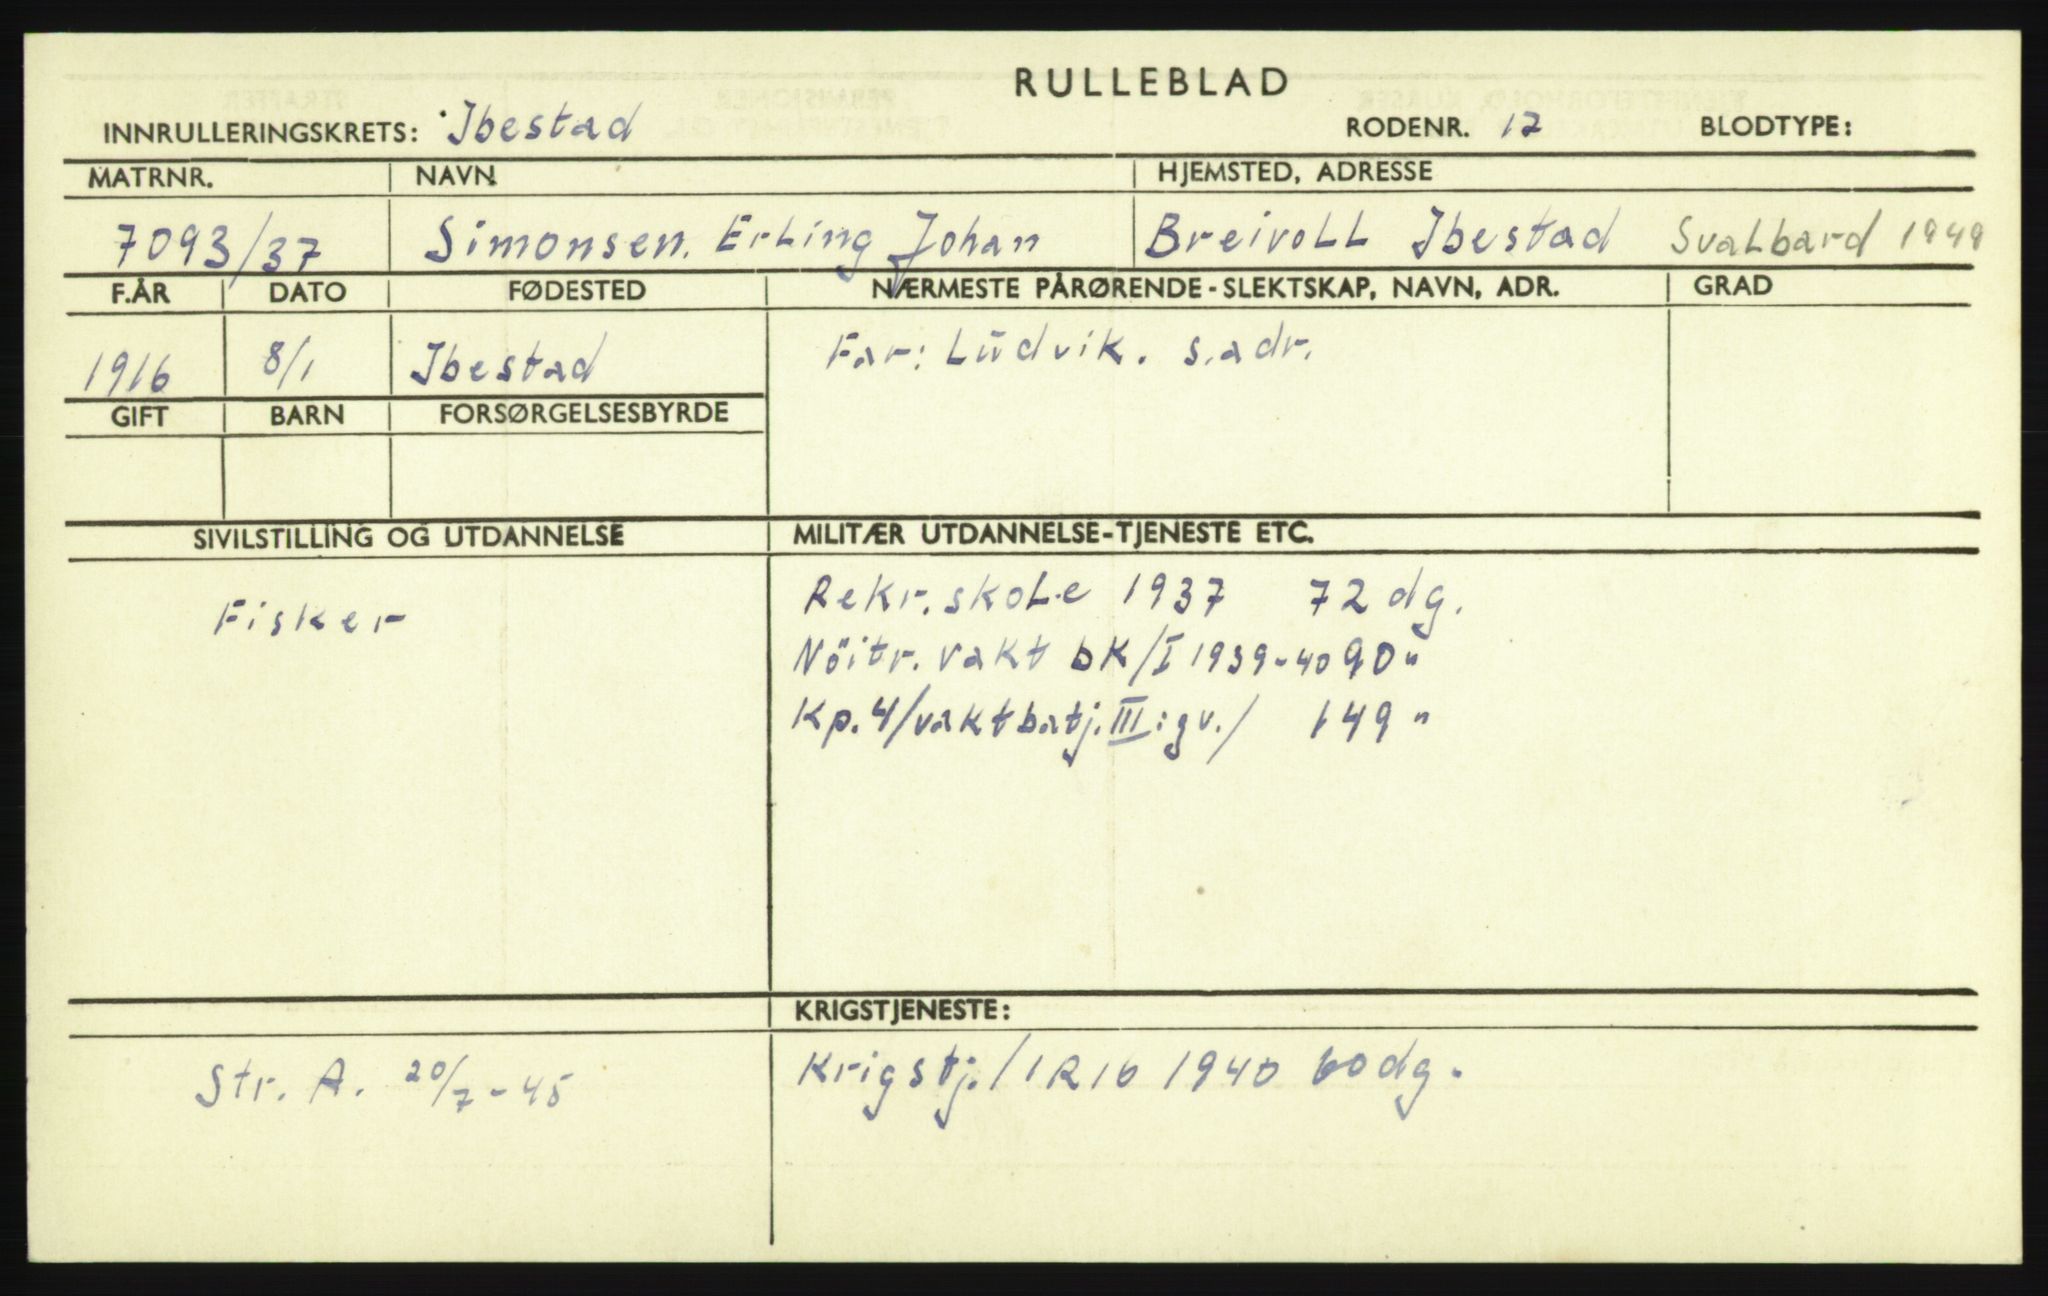 RULLEBLAD
INNRULLERINGSKRETS: Ibestad RODENR. 17 BLODTYPE:
MATRNR. NAVN HJEMSTED, ADRESSE
7093/37 Simonsen. Erling Johan Breivoll Ibestad Svalbard 1949
F.ÅR DATO FØDESTED NÆRMESTE PÅRØRENDE - SLEKTSKAP, NAVN, ADR. GRAD
1916 8/1 Ibestad Far: Ludvik. s.adr.
GIFT BARN FORSØRGELSESBYRDE
SIVILSTILLING OG UTDANNELSE MILITÆR UTDANNELSE-TJENESTE ETC.
Fisker Rekr.skole 1937 72 dg.
Nöitr. vakt bk/I 1939-40 90 "
Kp. 4/vaktbatj. III:gv./ 149 "
KRIGSTJENESTE:
Str. A. 20/7-45 Krigstj./IR16 1940 60 dg.